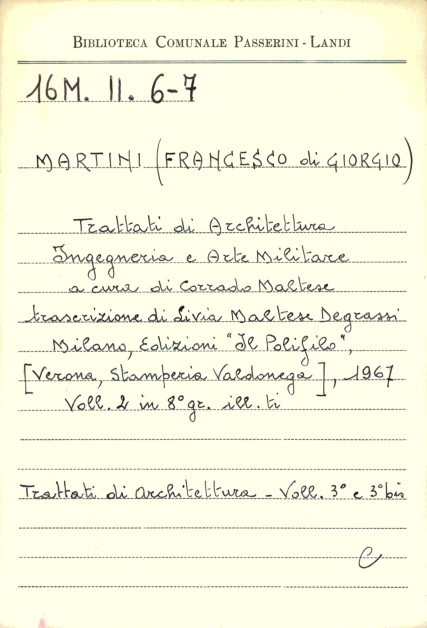 BIBLIOTECA COMUNALE PASSERINI - LANDI
16M. II. 6-7
MARTINI (FRANCESCO di GIORGIO)
Trattati di Architettura
Ingegneria e Arte Militare
a cura di Corrado Maltese
trascrizione di Livia Maltese Degrassi
Milano, Edizioni "Il Polifilo",
[Verona, Stamperia Valdonega], 1967
Voll. 2 in 8° gr. ill. ti
Trattati di Architettura - Voll. 3° e 3° bis
C